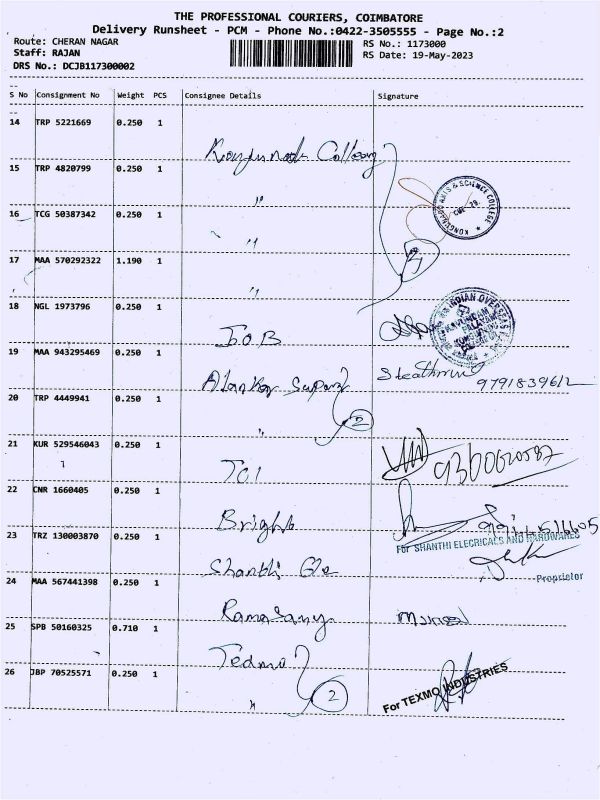 THE PROFESSIONAL COURIERS, COIMBATORE
Delivery Runsheet - PCM - Phone No.:0422-3505555 - Page No.:2
Route: CHERAN NAGAR
RS No.: 1173000
Staff: RAJAN
RS Date: 19-May-2023
DRS No.: DCJB117300002
S No Consignment No Weight PCS Consignee Details Signature
14 TRP 5221669 0.250 1
15 TRP 4820799 0.250 1 "
16 TCG 50387342 0.250 1 "
KONGUNADU ARTS & SCIENCE COLLEGE
17 MAA 570292322 1.190 1 "
4
18 NGL 1973796 0.250 1 I.O.B
INDIAN OVERSEAS BANK
19 MAA 943295469 0.250 1
20 TRP 4449941 0.250 1 "
2
21 KUR 529546043 0.250 1 TCI
22 CNR 1660405 0.250 1 Bright
23 TRZ 130003870 0.250 1 Shanthi Ele
For SHANTHI ELECRICALS AND HARDWARES
Proprietor
24 MAA 567441398 0.250 1 Ramasamy
25 SPB 50160325 0.710 1 Texmo
26 JBP 70525571 0.250 1 "
2
For TEXMO INDUSTRIES